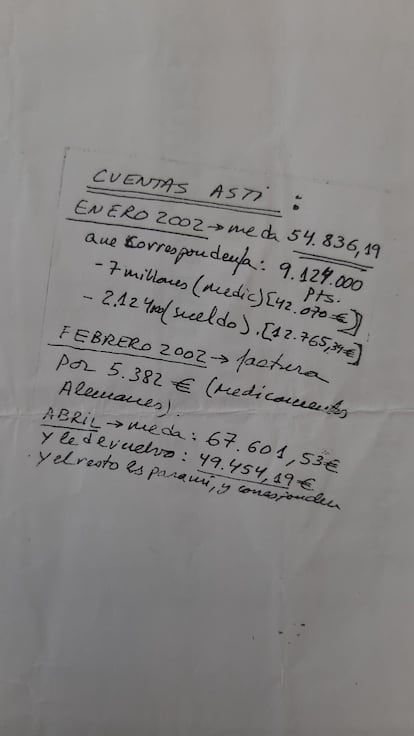 CUENTAS ASTI :
ENERO 2002 → me da 54.836,19
que corresponden/a : 9.124.000
Pts.
- 7 millones (medic) [42.070 €]
- 2.124 (sueldo). [12.765,34 €]
FEBRERO 2002 → factura
por 5.382 € (medicamentos
Alemanes).
ABRIL → me da : 67.601,53 €
y le devuelvo : 49.454,19 €
y el resto es para mí, y corresponden